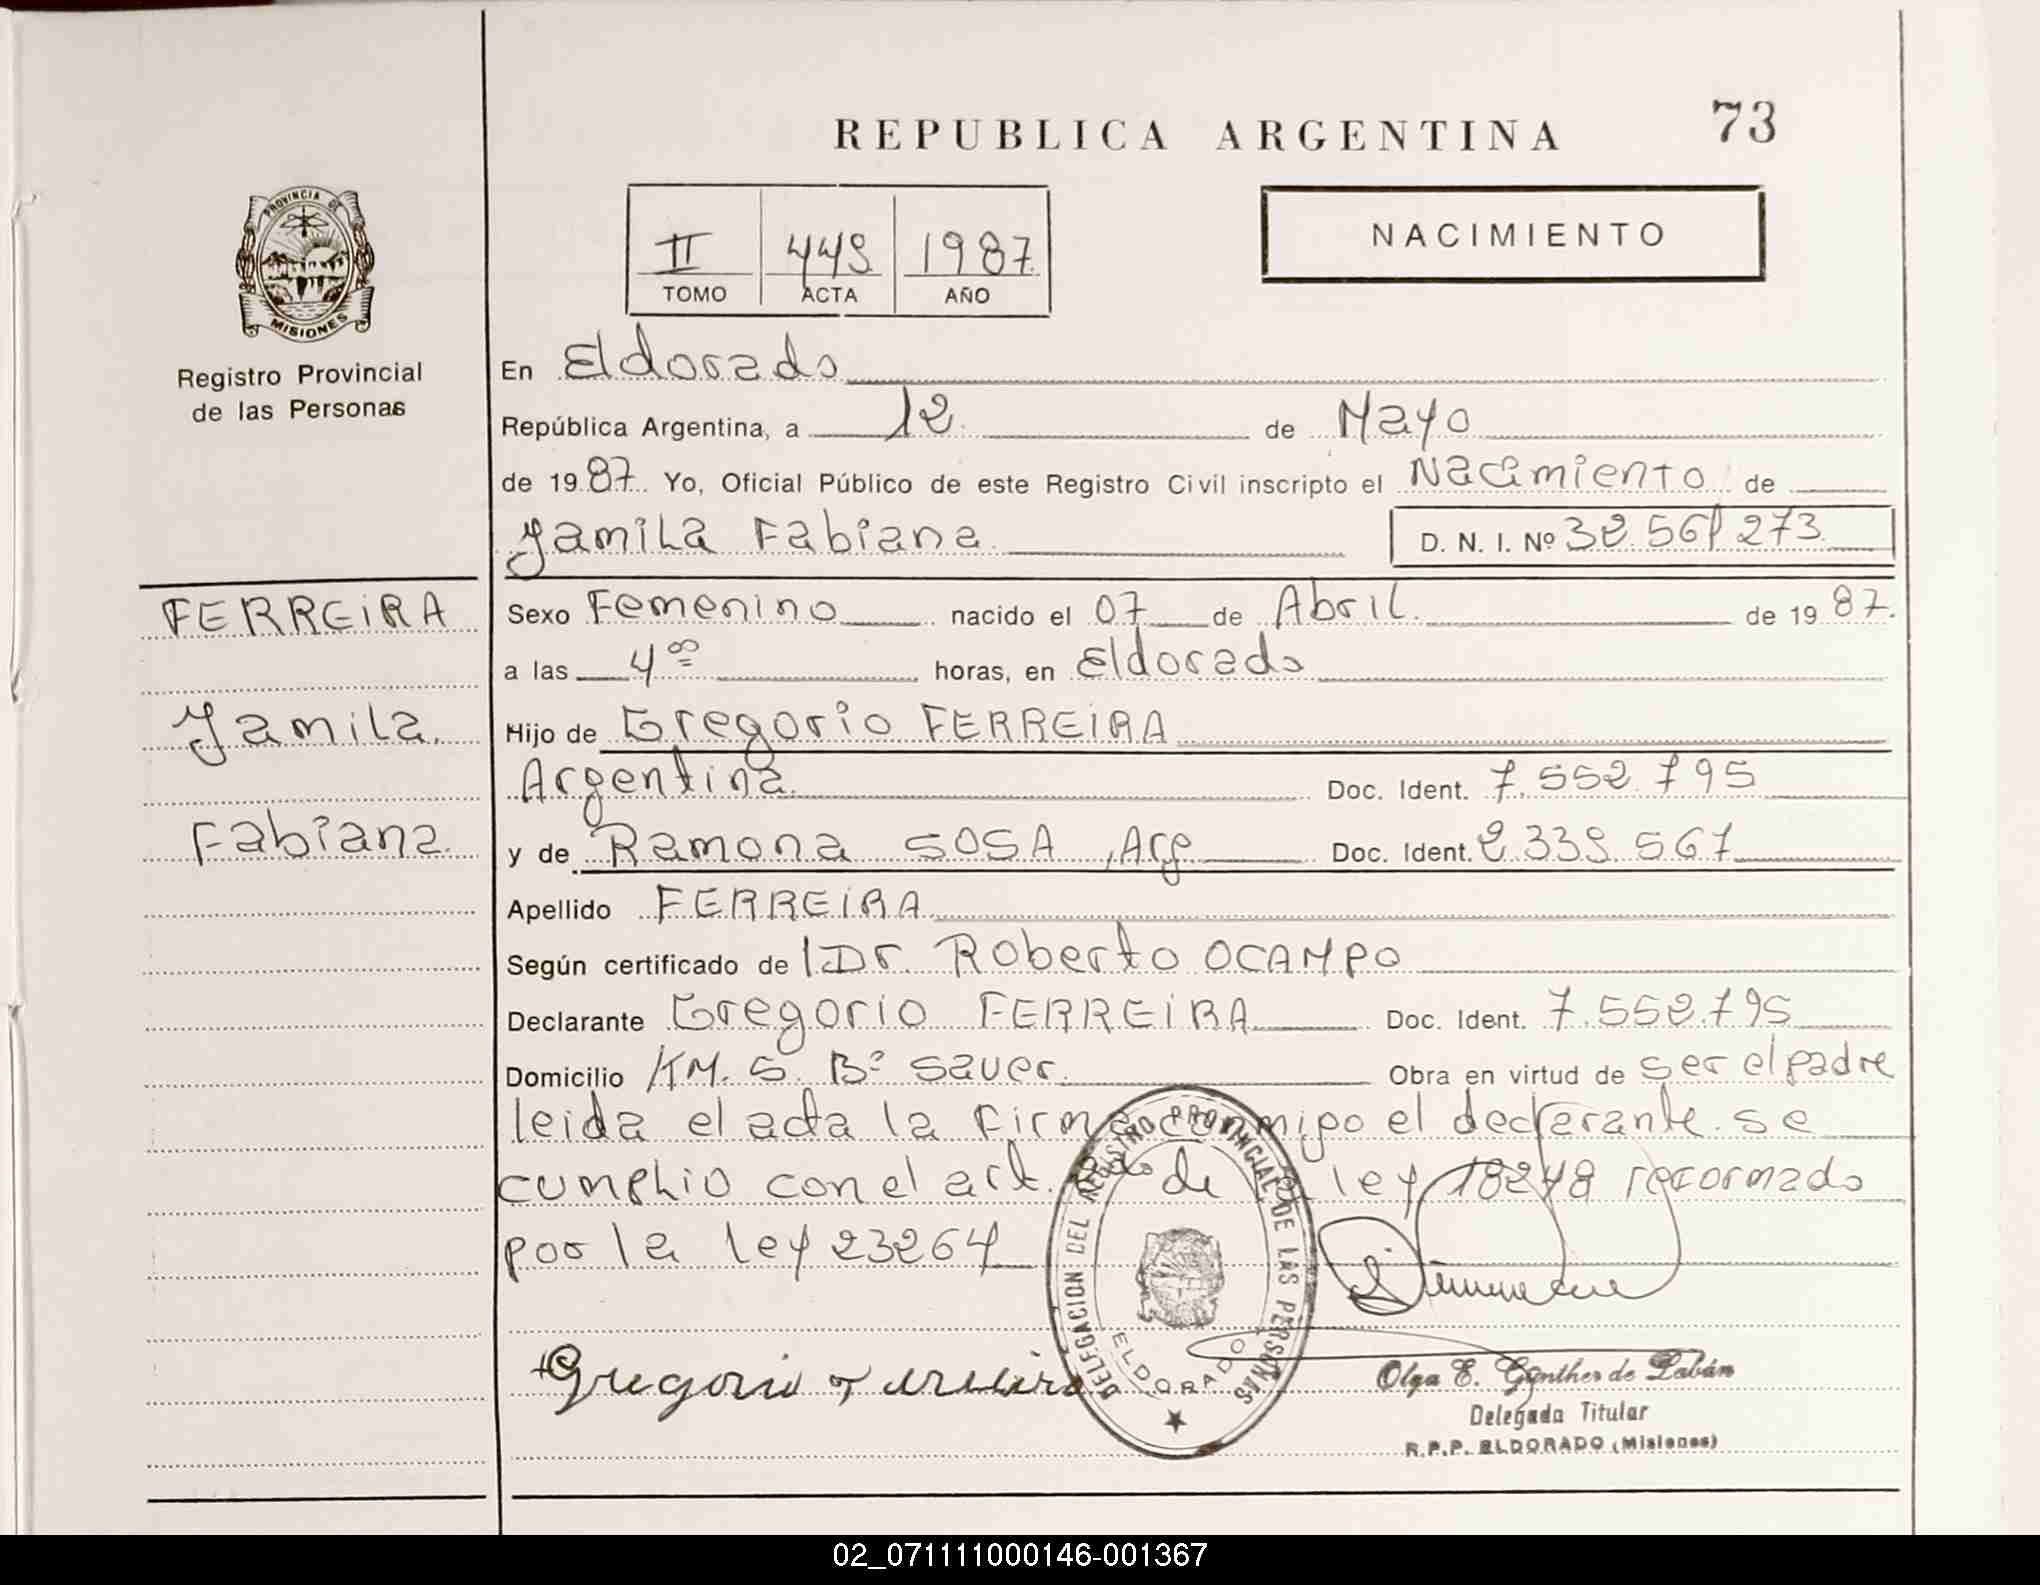 REPUBLICA ARGENTINA
73
PROVINCIA DE
MISIONES
Registro Provincial
de las Personas
II 449 1987
TOMO ACTA AÑO
NACIMIENTO
En Eldorado
República Argentina, a 12 de Mayo
de 1987. Yo, Oficial Público de este Registro Civil inscripto el Nacimiento de
Yamila Fabiana D. N. I. Nº 32.561 273
FERREIRA
Yamila
Fabiana
Sexo Femenino nacido el 07 de Abril de 1987.
a las 4 00 horas, en Eldorado
Hijo de Gregorio FERREIRA
Argentina Doc. Ident. 7.552.795
y de Ramona SOSA, Arg Doc. Ident. 2.339.567
Apellido FERREIRA
Según certificado de Dr. Roberto OCAMPO
Declarante Gregorio FERREIRA Doc. Ident. 7.552.795
Domicilio KM. 5. Bº Sauer. Obra en virtud de ser el padre
leida el acta la firma conmigo el declarante. se
cumplio con el art. de la ley 18248 reformado
por la ley 23264
Gregorio Ferreira
DELEGACION DEL REGISTRO PROVINCIAL DE LAS PERSONAS
ELDORADO
Olga E. Günther de Labán
Delegada Titular
R.P.P. ELDORADO (Misiones)
02_071111000146-001367